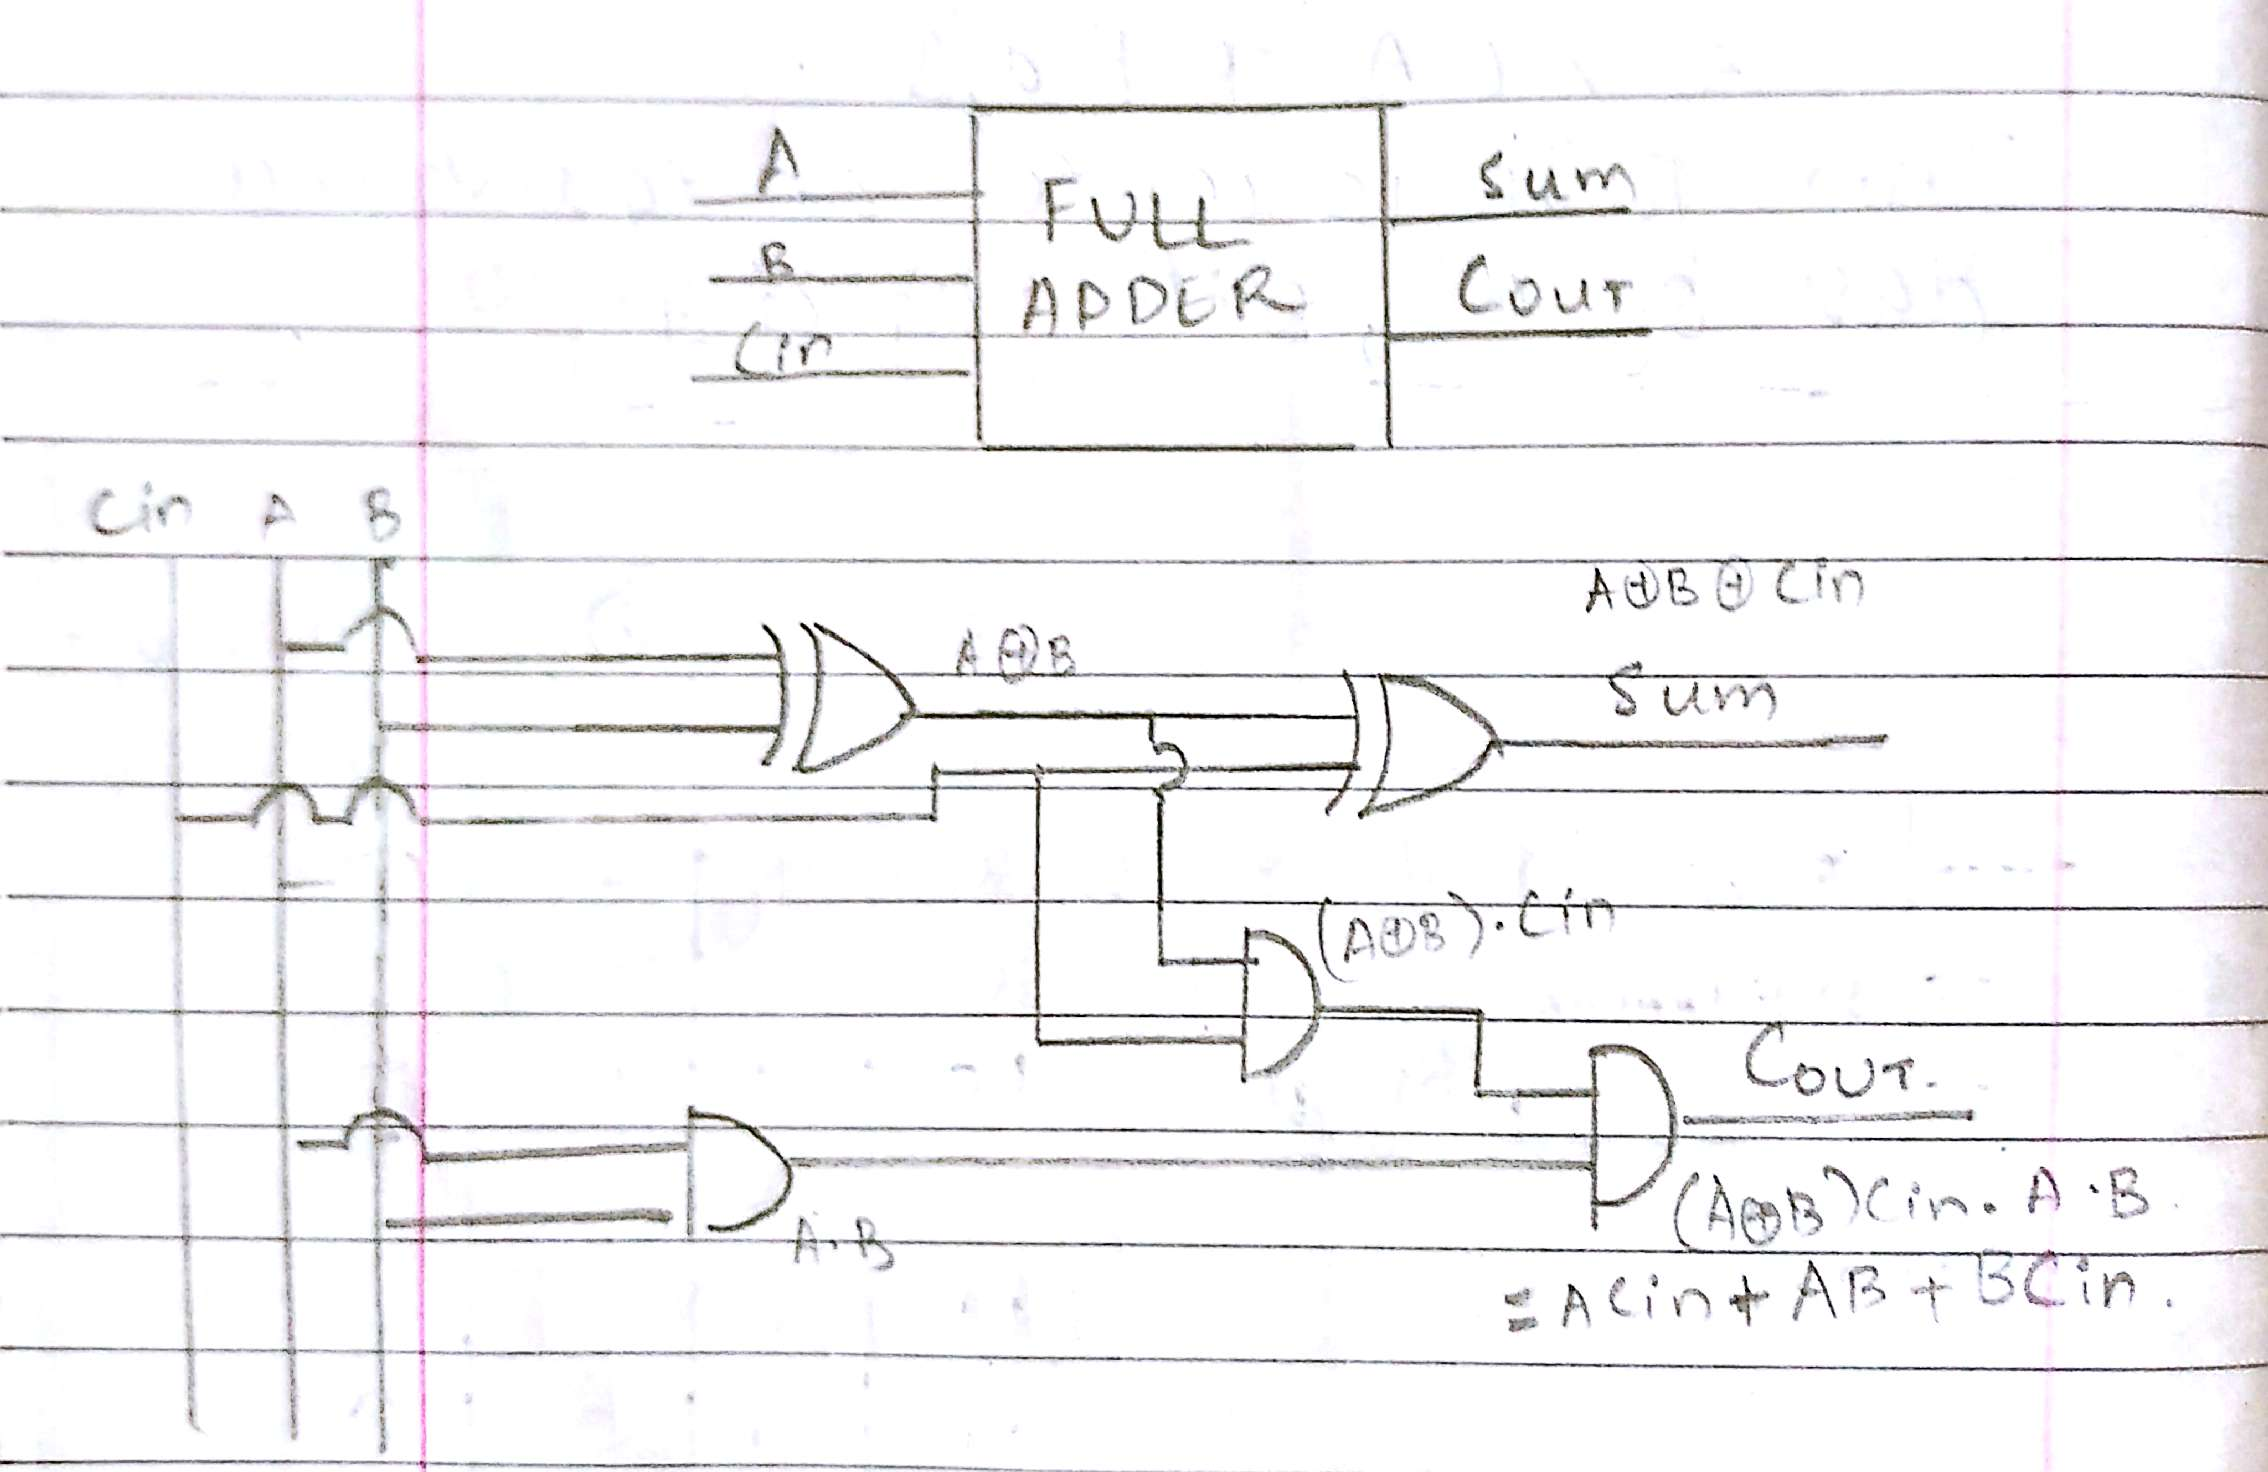 A
B
Cin
FULL
ADDER
Sum
COUT
Cin A B
A⊕B⊕Cin
A⊕B
Sum
(A⊕B).Cin
COUT.
A.B
(A⊕B)Cin.A.B.
=ACin+AB+BCin.